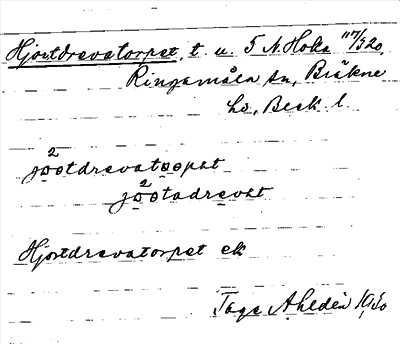 Hjortdrevatorpet, t. u. 5 N. Hoka 117/520
Ringamåla sn, Bräkne
hd, Blek. l.
jɷ²ɷtdrevatɷɷpet
jɷ²ɷtadrevet
Hjortdrevatorpet ek
Tage Ahldén 1950